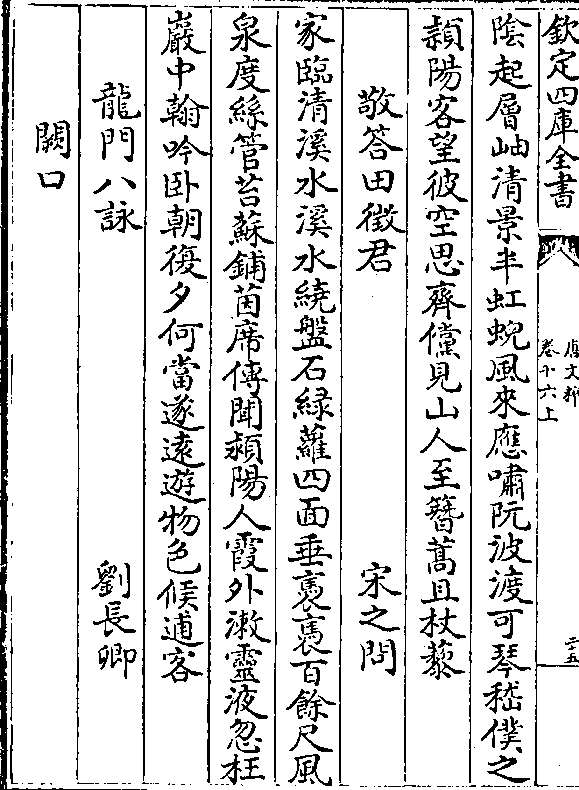 欽定四庫全書
唐文粹
卷十六上
二五
陰起層岫清景半虹蜺風來應嘯阮波渡可琴嵇僕之
潁陽客望彼空思齊儻見山人至簪蒿且杖藜
敬答田徵君　宋之問
家臨清溪水溪水繞盤石緑蘿四面垂褭褭百餘尺風
泉度絲管苔蘇鋪茵席傳聞潁陽人霞外漱靈液忽枉
巖中翰吟卧朝復夕何當遂遠遊物色候逋客
龍門八詠　劉長卿
闕口